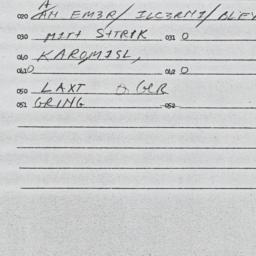 A
020 AH EM3R/ ILC3RNI/ BLEY
030 MIT+ S+TRIK 031 0
040 KAROMISL,
041 0 042 0
050 LAXT GER
051 GRING 052